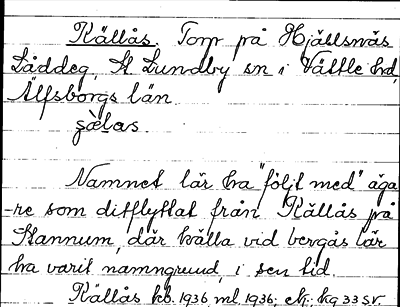 Källås. Torp på Hjällsnäs
Låddeg, St Lundby sn i Vättle hd,
Älfsborgs län.
Namnet lär ha "följt med" äga-
-re som ditflyttat från Källås på
Stannum, där källa vid bergås lär
ha varit namngrund, i sen tid.
Källås hb. 1936 ml. 1936;